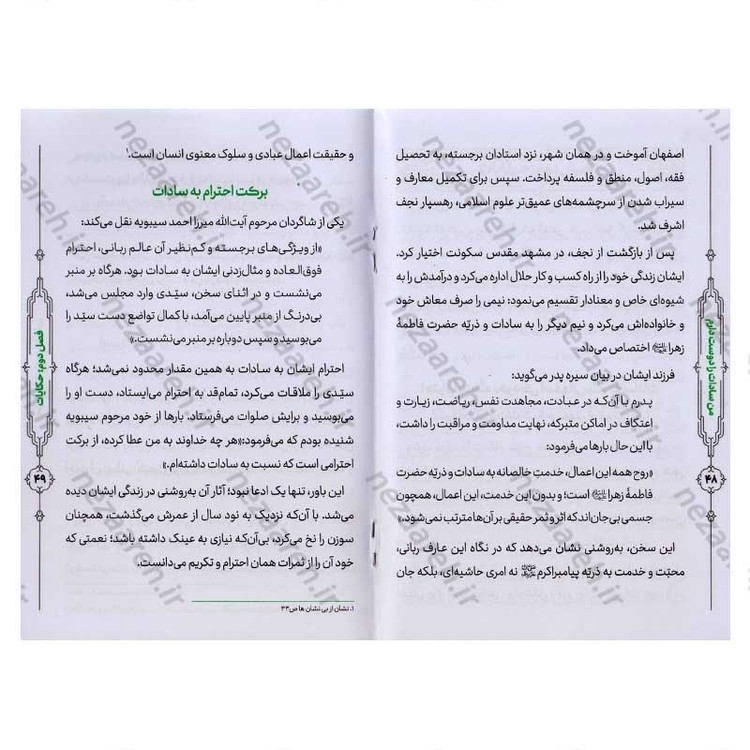 اصفهان آموخت و در همان شهر، نزد استادان برجسته، به تحصیل
فقه، اصول، منطق و فلسفه پرداخت. سپس برای تکمیل معارف و
سیراب شدن از سرچشمه‌های عمیق‌تر علوم اسلامی، رهسپار نجف
اشرف شد.
پس از بازگشت از نجف، در مشهد مقدس سکونت اختیار کرد.
ایشان زندگی خود را از راه کسب و کار حلال اداره می‌کرد و درآمدش را به
شیوه‌ای خاص و معنادار تقسیم می‌نمود: نیمی را صرف معاش خود
و خانواده‌اش می‌کرد و نیم دیگر را به سادات و ذریّه حضرت فاطمهٔ
زهرا اختصاص می‌داد.
فرزند ایشان در بیان سیره پدر می‌گوید:
پدرم با آن‌که در عبادت، مجاهدت نفس، ریاضت، زیارت و
اعتکاف در اماکن متبرکه، نهایت مداومت و مراقبت را داشت،
با این حال بارها می‌فرمود:
«روح همه این اعمال، خدمتِ خالصانه به سادات و ذریّه حضرت
فاطمهٔ زهرا است؛ و بدون این خدمت، این اعمال، همچون
جسمی بی‌جان‌اند که اثر و ثمر حقیقی بر آن‌ها مترتب نمی‌شود.»
این سخن، به‌روشنی نشان می‌دهد که در نگاه این عارف ربانی،
محبّت و خدمت به ذریّه پیامبر اکرم نه امری حاشیه‌ای، بلکه جان
من سادات را دوست دارم
۴۸
و حقیقت اعمال عبادی و سلوک معنوی انسان است.۱
برکت احترام به سادات
یکی از شاگردان مرحوم آیت‌الله میرزا احمد سیبویه نقل می‌کند:
«از ویژگی‌های برجسته و کم‌نظیر آن عالم ربانی، احترام
فوق‌العاده و مثال‌زدنی ایشان به سادات بود. هرگاه بر منبر
می‌نشست و در اثنای سخن، سیّدی وارد مجلس می‌شد،
بی‌درنگ از منبر پایین می‌آمد، با کمال تواضع دست سیّد را
می‌بوسید و سپس دوباره بر منبر می‌نشست.»
احترام ایشان به سادات به همین مقدار محدود نمی‌شد؛ هرگاه
سیّدی را ملاقات می‌کرد، تمام‌قد به احترام می‌ایستاد، دست او را
می‌بوسید و برایش صلوات می‌فرستاد. بارها از خود مرحوم سیبویه
شنیده بودم که می‌فرمود:«هر چه خداوند به من عطا کرده، از برکت
احترامی است که نسبت به سادات داشته‌ام.»
این باور، تنها یک ادعا نبود؛ آثار آن به‌روشنی در زندگی ایشان دیده
می‌شد. با آن‌که نزدیک به نود سال از عمرش می‌گذشت، همچنان
سوزن را نخ می‌کرد، بی‌آن‌که نیازی به عینک داشته باشد؛ نعمتی که
خود آن را از ثمرات همان احترام و تکریم می‌دانست.
۱. نشان از بی نشان ها ص۴۳
فصل دوم: حکایات
۴۹
nezaareh.ir